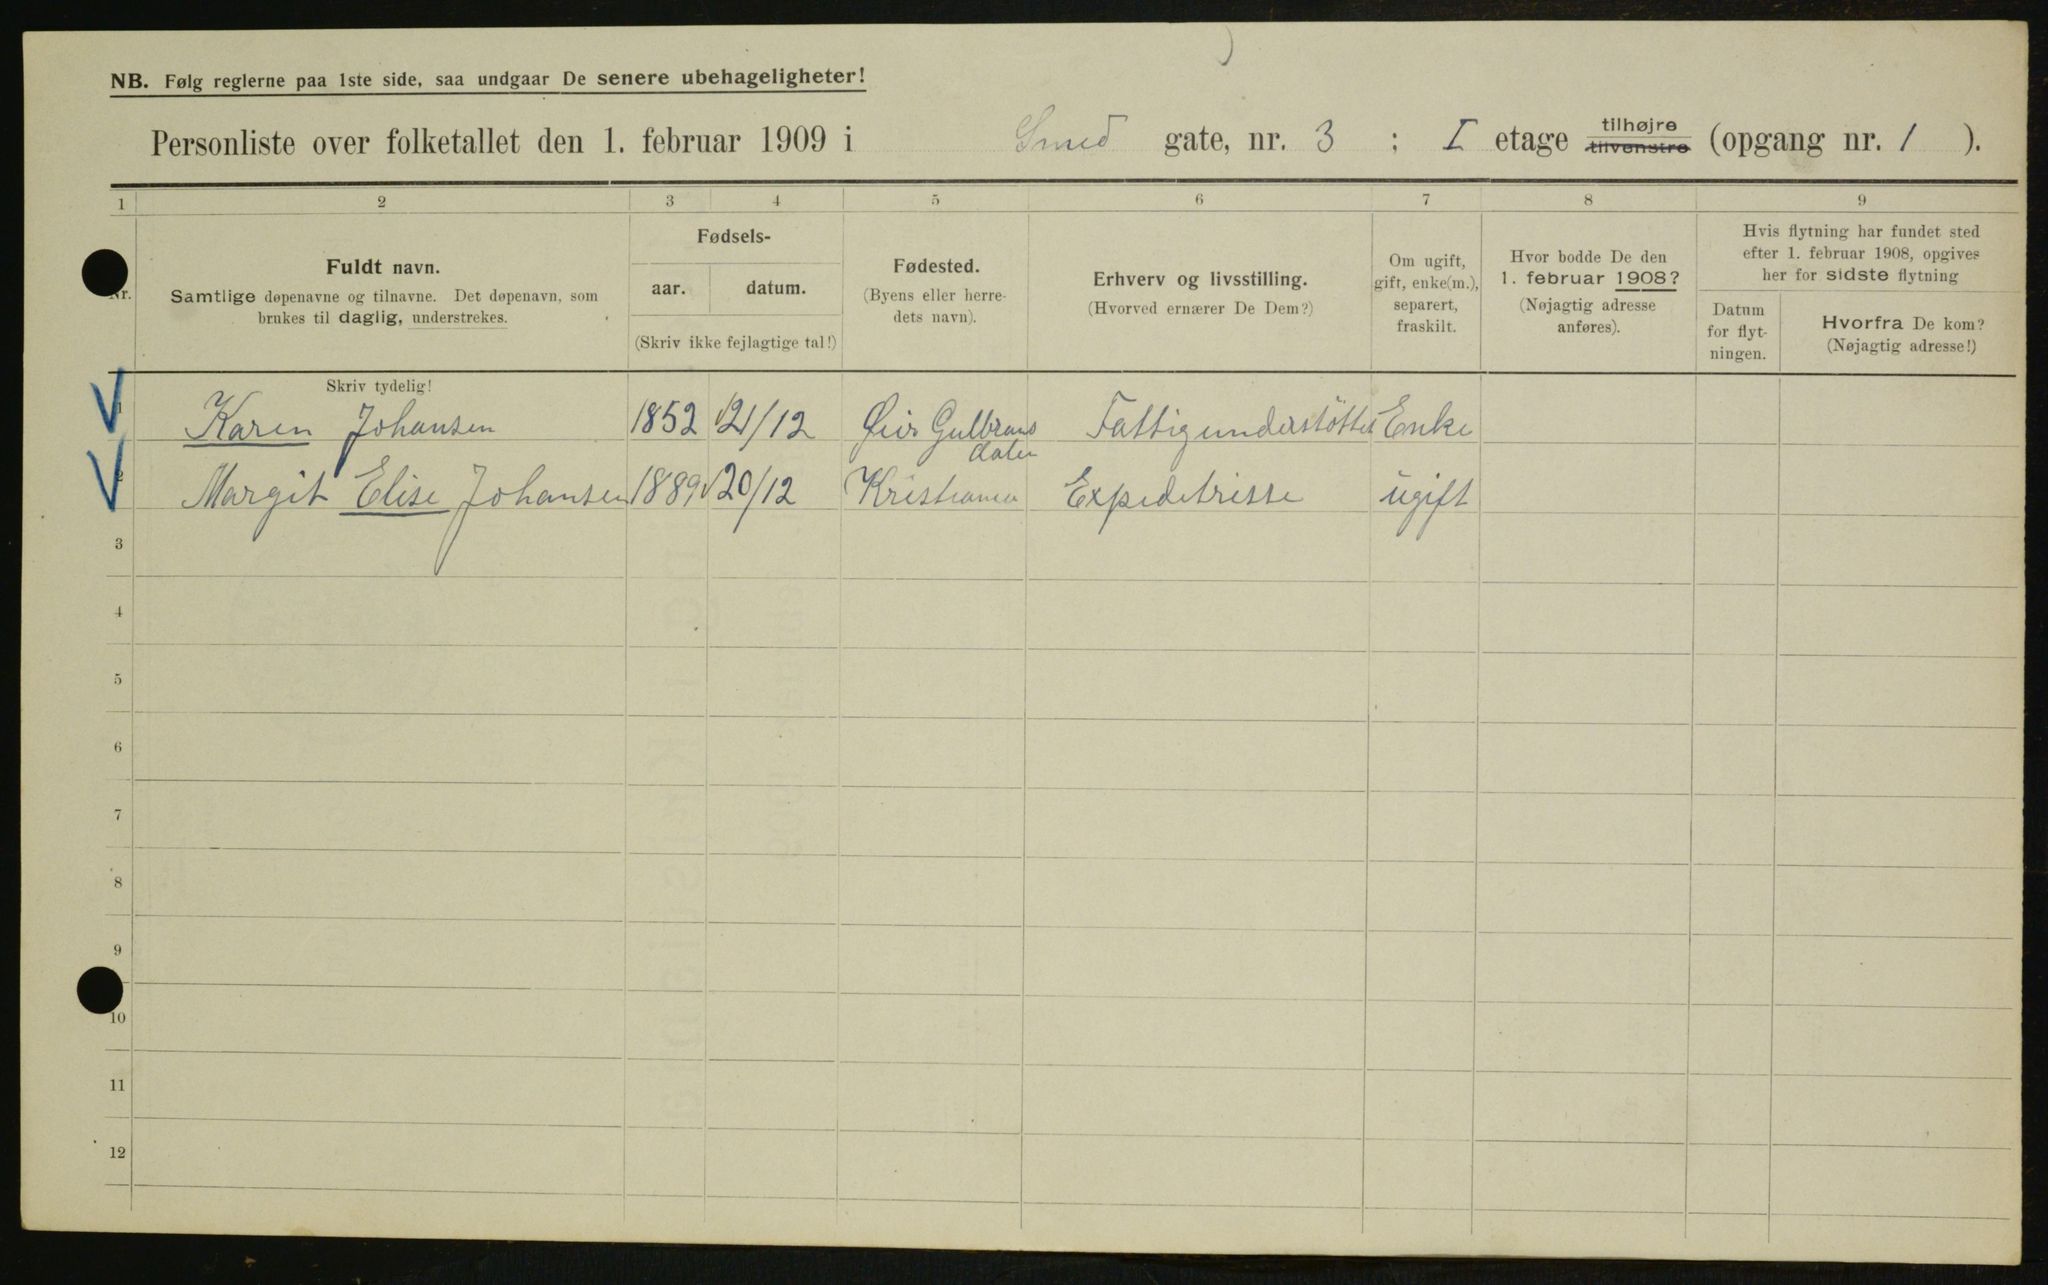 NB. Følg reglerne paa 1ste side, saa undgaar De senere ubehageligheter!
Personliste over folketallet den 1. februar 1909 i Smed gate, nr. 3 ; I etage tilhøjre tilvenstre (opgang nr. 1 ).
1 2 3 4 5 6 7 8 9
Nr.
Fuldt navn.
Samtlige døpenavne og tilnavne. Det døpenavn, som
brukes til daglig, understrekes.
Fødsels-
aar. datum.
(Skriv ikke fejlagtige tal!)
Fødested.
(Byens eller herre-
dets navn).
Erhverv og livsstilling.
(Hvorved ernærer De Dem?)
Om ugift,
gift, enke(m.),
separert,
fraskilt.
Hvor bodde De den
1. februar 1908?
(Nøjagtig adresse
anføres).
Hvis flytning har fundet sted
efter 1. februar 1908, opgives
her for sidste flytning
Datum
for flyt-
ningen.
Hvorfra De kom?
(Nøjagtig adresse!)
Skriv tydelig!
1 Karen Johansen 1852 21/12 Øier Gulbrans Fattigunderstöttet Enke
dalen
2 Margit Elise Johansen 1889 20/12 Kristiania Expeditrisse ugift
3
4
5
6
7
8
9
10
11
12